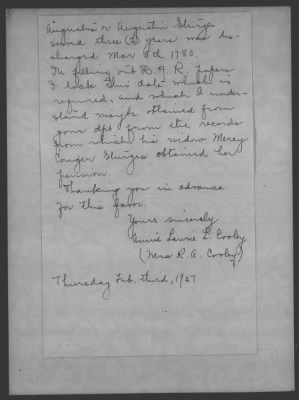 Augustus or Augustin Sturges
served three (3) years was dis-
charged Mar 8th 1780.
In filling out D.A.R. papers
I lack this data which is
required, and which I under-
stand maybe obtained from
your dpt from the records
from which his widow Mercy
Conger Sturges obtained her
pension.
Thanking you in advance
for this favor.
Yours sincerely
Annie Laurie L. Cooley
(Mrs R. A. Cooley)
Thursday Feb. third, 1927